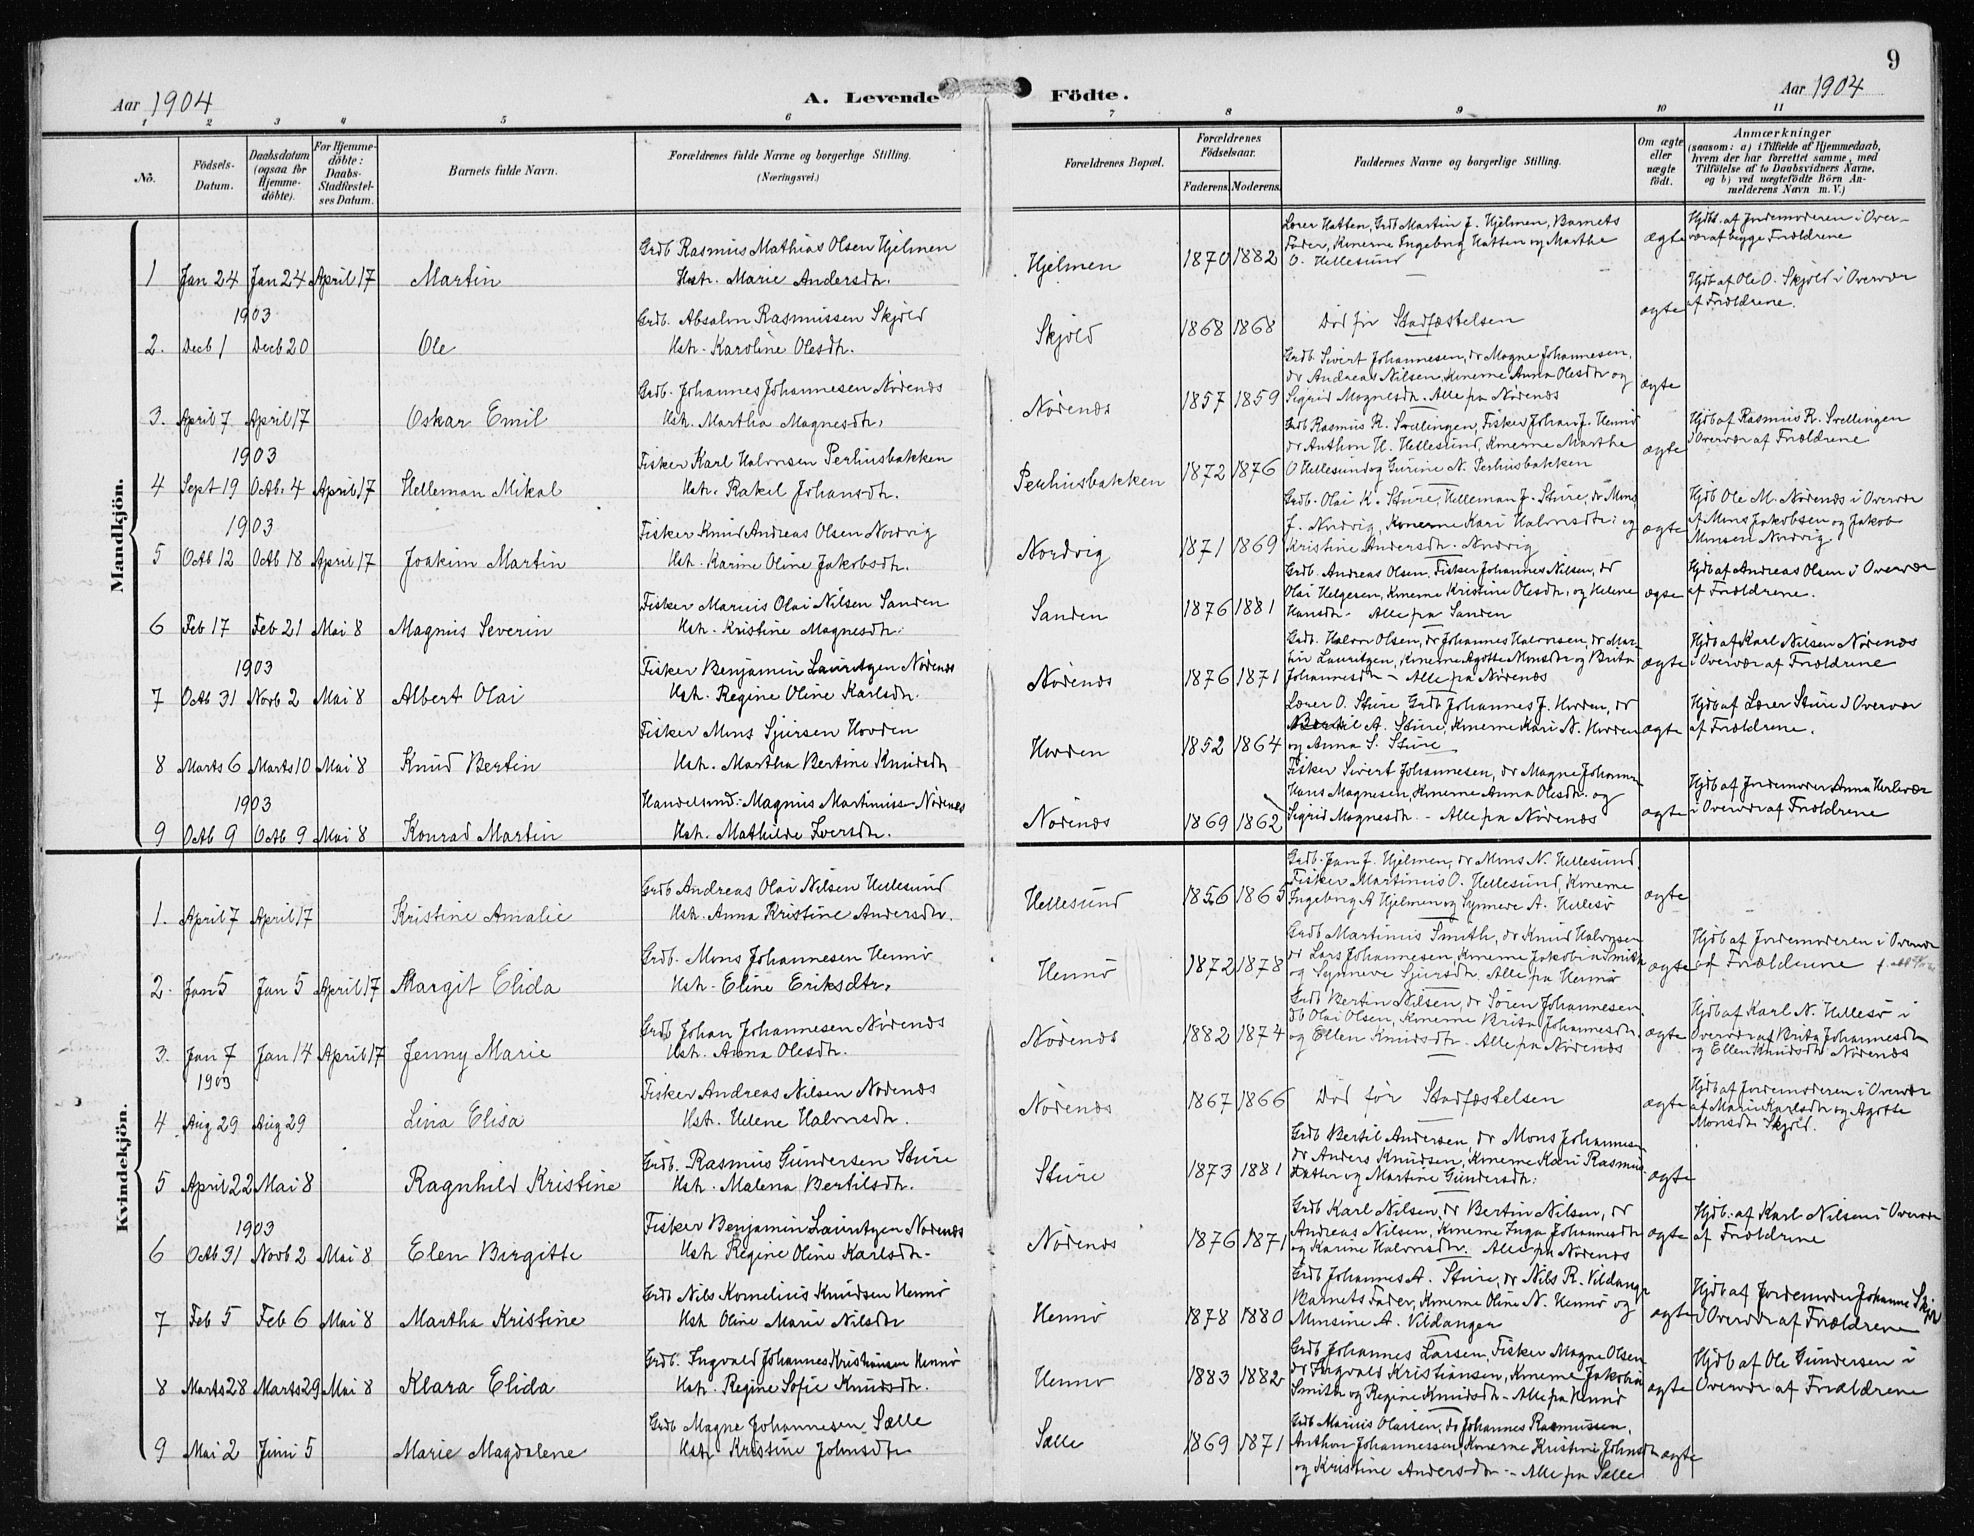 9
Aar 1904
A. Levende Födte.
Aar 1904
1 2 3 4 5 6 7 8 9 10 11
No.
Födsels-Datum.
Daabsdatum (ogsaa for Hjemme-döbte).
For Hjemme-döbte: Daabs-Stadfæstel-ses Datum.
Barnets fulde Navn.
Forældrenes fulde Navne og borgerlige Stilling. (Næringsvei.)
Forældrenes Bopæl.
Forældrenes Födselsaar.
Faderens. Moderens.
Faddernes Navne og borgerlige Stilling.
Om ægte eller uægte födt.
Anmærkninger
(saasom: a) i Tilfælde af Hjemmedaab,
hvem der har forrettet samme, med
Tilföielse af to Daabsvidners Navne,
og b) ved uægtefödte Börn An-
melderens Navn m. V.)
Mandkjön.
1 Jan 24 Jan 24 April 17 Martin
Grdb Rasmus Mathias Olsen Hjelmen
Hstr. Marie Andersdtr.
Hjelmen 1870 1882
Lærer Hatten, Grdb Martin J. Hjelmen, Barnets
Fader, Konerne Ingeborg Hatten og Marthe
O. Hellesund
ægte
Hjdbt. af Jordemoderen i Over-
vær af begge Forældrene
1903
2. Decb 1 Decb 20 Ole
Grdb. Absalon Rasmussen Skjold
Hstr. Karoline Olesdtr.
Skjold 1868 1868
Död för Stadfæstelsen
ægte
Hjdb af Ole O. Skjold i Overvær
af Forældrene.
3. April 7 April 17 Oskar Emil
Grdb. Johannes Johannesen Nörenæs
Hstr. Martha Magnesdtr.
Nörenæs 1857 1859
Grdb. Sivert Johannesen, do Magne Johannesen,
do Andreas Nilsen, Konerne Anna Olesdtr og
Sigrid Magnesdtr. Alle fra Nörenæs
ægte
1903
4 Sept 19 Octb. 4 April 17 Helleman Mikal
Fisker Karl Halvorsen Perhusbakken
Hstr. Rakel Johansdtr.
Perhusbakken 1872 1876
Grdb Rasmus R. Svellingen, Fisker Johan J. Hennö
do Anthon H. Hellesund, Konerne Marthe
O Hellesund og Gurine N. Perhusbakken
ægte
Hjdb af Rasmus R. Svellingen
i Overvær af Forældrene
1903
5 Octb 12 Octb 18 April 17 Joakim Martin
Fisker Knud Andreas Olsen Nordvig
Hstr. Karine Oline Jakobsdtr.
Nordvig 1871 1869
Grdb. Olai K. Sture, Helleman J. Sture, do Mons
J. Nordvig, Konerne Kari Halvorsdtr. og
Kristine Andersdtr. Nordvig
ægte
Hjdb Ole M. Nörenæs i Overvær
af Mons Jakobsen og Jakob
Monsen Nordvig.
6 Feb 17 Feb 21 Mai 8 Magnus Severin
Fisker Marius Olai Nilsen Sanden
Hstr. Kristine Magnesdtr.
Sanden 1876 1881
Grdb. Andreas Olsen, Fisker Johannes Nilsen, do
Olai Helgesen, Konerne Kristine Olesdtr. og Helene
Hansdtr - Alle fra Sanden
ægte
Hjdb af Andreas Olsen i Overvær
af Forældrene.
1903
7 Octb 31 Novb 2 Mai 8 Albert Olai
Fisker Benjamin Lauritzen Nörenæs
Hstr. Regine Oline Karlsdtr.
Nörenæs 1876 1871
Grdb. Halvor Olsen, do Johannes Halvorsen, do Mar-
tin Lauritzen, Konerne Agotte Monsdtr og Brita
Johannesdtr - Alle fra Nörenæs
ægte
Hjdb af Karl Nilsen Nörenæs
i Overvær af Forældrene
8 Marts 6 Marts 10 Mai 8 Knud Bertin
Fisker Mons Sjursen Hovden
Hstr. Martha Bertine Knudsdtr
Hovden 1852 1864
Lærer O. Sture, Grdb Johannes J. Hovden, do
Bertil A. Sture, Konerne Kari N. Hovden
og Anna S. Sture
ægte
Hjdb af Lærer Sture i Overvær
af Forældrene.
1903
9 Octb 9 Octb 9 Mai 8 Konrad Martin
Handelsmd. Magnus Martinussen Nörenæs
Hstr. Mathilde Iversdtr.
Nörenæs 1869 1862
Fisker Sivert Johannesen, do Magne Johannes
Hans Magnesen, Konerne Anna Olesdtr. og
Sigrid Magnesdtr. - Alle fra Nörenæs
ægte
Hjdb af Jordemoder Anna Herlevær
i Overvær af Forældrene
Kvindekjön.
1. April 7 April 17 Kristine Amalie
Grdb Andreas Olai Nilsen Hellesund
Hstr. Anna Kristine Andersdtr.
Hellesund 1856 1865
Grdb. Jan J. Hjelmen, do Mons N. Hellesund
Fisker Martinus O. Hellesund, Konerne
Ingeborg A Hjelmen og Synneve A. Hellesö
ægte
2. Jan 5 Jan 5 April 17 Margit Elida
Grdb. Mons Johannesen Hennö
Hstr. Eline Eriksdtr.
Hennö 1872 1878
Grdb Martinus Smith, do Knud Halvorsen
do Lars Johannesen, Konerne Jakobina Smith
og Synneve Sjursdtr. Alle fra Hennö
ægte
Hjdb af Jordemoderen i Overvær
af Forældrene
3. Jan 7 Jan 14 April 17 Jenny Marie
Grdb Johan Johannesen Nörenæs
Hstr. Anna Olesdtr.
Nörenæs 1882 1874
Grdb Bertin Nilsen, do Sören Johannesen
do Olai Olsen, Konerne Brita Johannesdtr.
og Ellen Knudsdtr. Alle fra Nörenæs
ægte
Hjdb af Karl N. Hellesö i
Overvær af Brita Johannesdtr
og Ellen Knudsdtr Nörenæs
1903
4 Aug 29 Aug 29 Lina Elisa
Fisker Andreas Nilsen Nörenæs
Hstr. Helene Halvorsdtr.
Nörenæs 1867 1866
Död för Stadfæstelsen
ægte
Hjdb af Jordemoderen i Overvær
af Marie Karlsdtr og Agotte
Monsdtr Skjold.
5 April 22 Mai 8 Ragnhild Kristine
Grdb. Rasmus Gundersen Sture
Hstr. Malena Bertilsdtr.
Sture 1873 1881
Grdb Bertil Andersen, do Mons Johannes
do Anders Knudsen, Konerne Kari Rasmus
datter og Martine Gundersdtr.
ægte
1903
6 Octb 31 Novb 2 Mai 8 Elen Birgitte
Fisker Benjamin Lauritzen Nörenæs
Hstr Regine Oline Karlsdtr.
Nörenæs 1876 1871
Grdb Karl Nilsen, do Bertin Nilsen, do
Andreas Nilsen, Konerne Inga Johannesdtr
og Karine Halvorsdtr. Alle fra Nörenæs
ægte
Hjdb. af Karl Nilsen i Overvær
af Forældrene
7 Feb 5 Feb 6 Mai 8 Martha Kristine
Grdb Nils Kornelius Knudsen Hennö
Hstr Oline Marie Nilsdtr
Hennö 1878 1880
Grdb Johannes A. Sture, do Nils R. Vildanger
Barnets Fader, Konerne Oline N. Hennö og
Monsine A. Vildanger
ægte
Hjdb af Jordemoder Johanne Skjold
i Overvær af Forældrene
8 Marts 28 Marts 29 Mai 8 Klara Elida
Grdb. Ingvald Johannes Kristiansen Hennö
Hstr. Regine Sofie Knudsdtr.
Hennö 1883 1882
Grdb Johannes Larsen, Fisker Magne Olsen
do Ingvald Kristiansen, Konerne Jakobina
Smith og Regine Knudsdtr - Alle fra Hennö
ægte
Hjdb af Ole Gundersen i
Overvær af Forældrene
9 Mai 2 Juni 5 Marie Magdalene
Grdb Magne Johannesen Sælle
Hstr Kristine Johnsdtr
Sælle 1869 1871
Grdb Marius Olaisen, do Johannes Rasmussen,
Anthon Johannessen, Konerne Kristine Johnsdtr
og Kristine Andersdtr - Alle fra Sælle
ægte